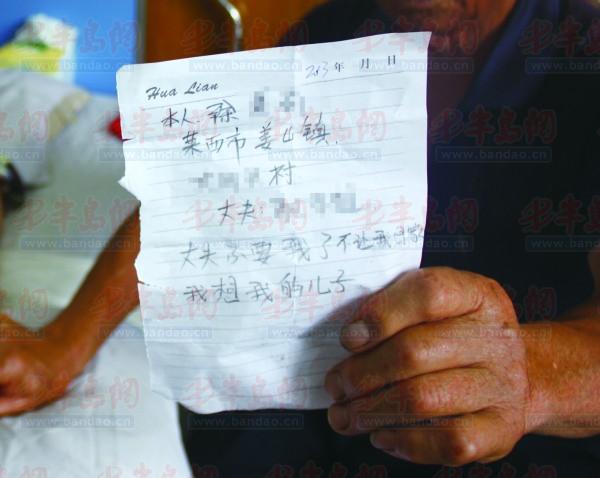 Hua Lian
2013年 月 日
本人:徐
莱西市姜山镇.
村
丈夫:
丈夫不要我了不让我回家
我想我的儿子
半岛网
www.bandao.cn